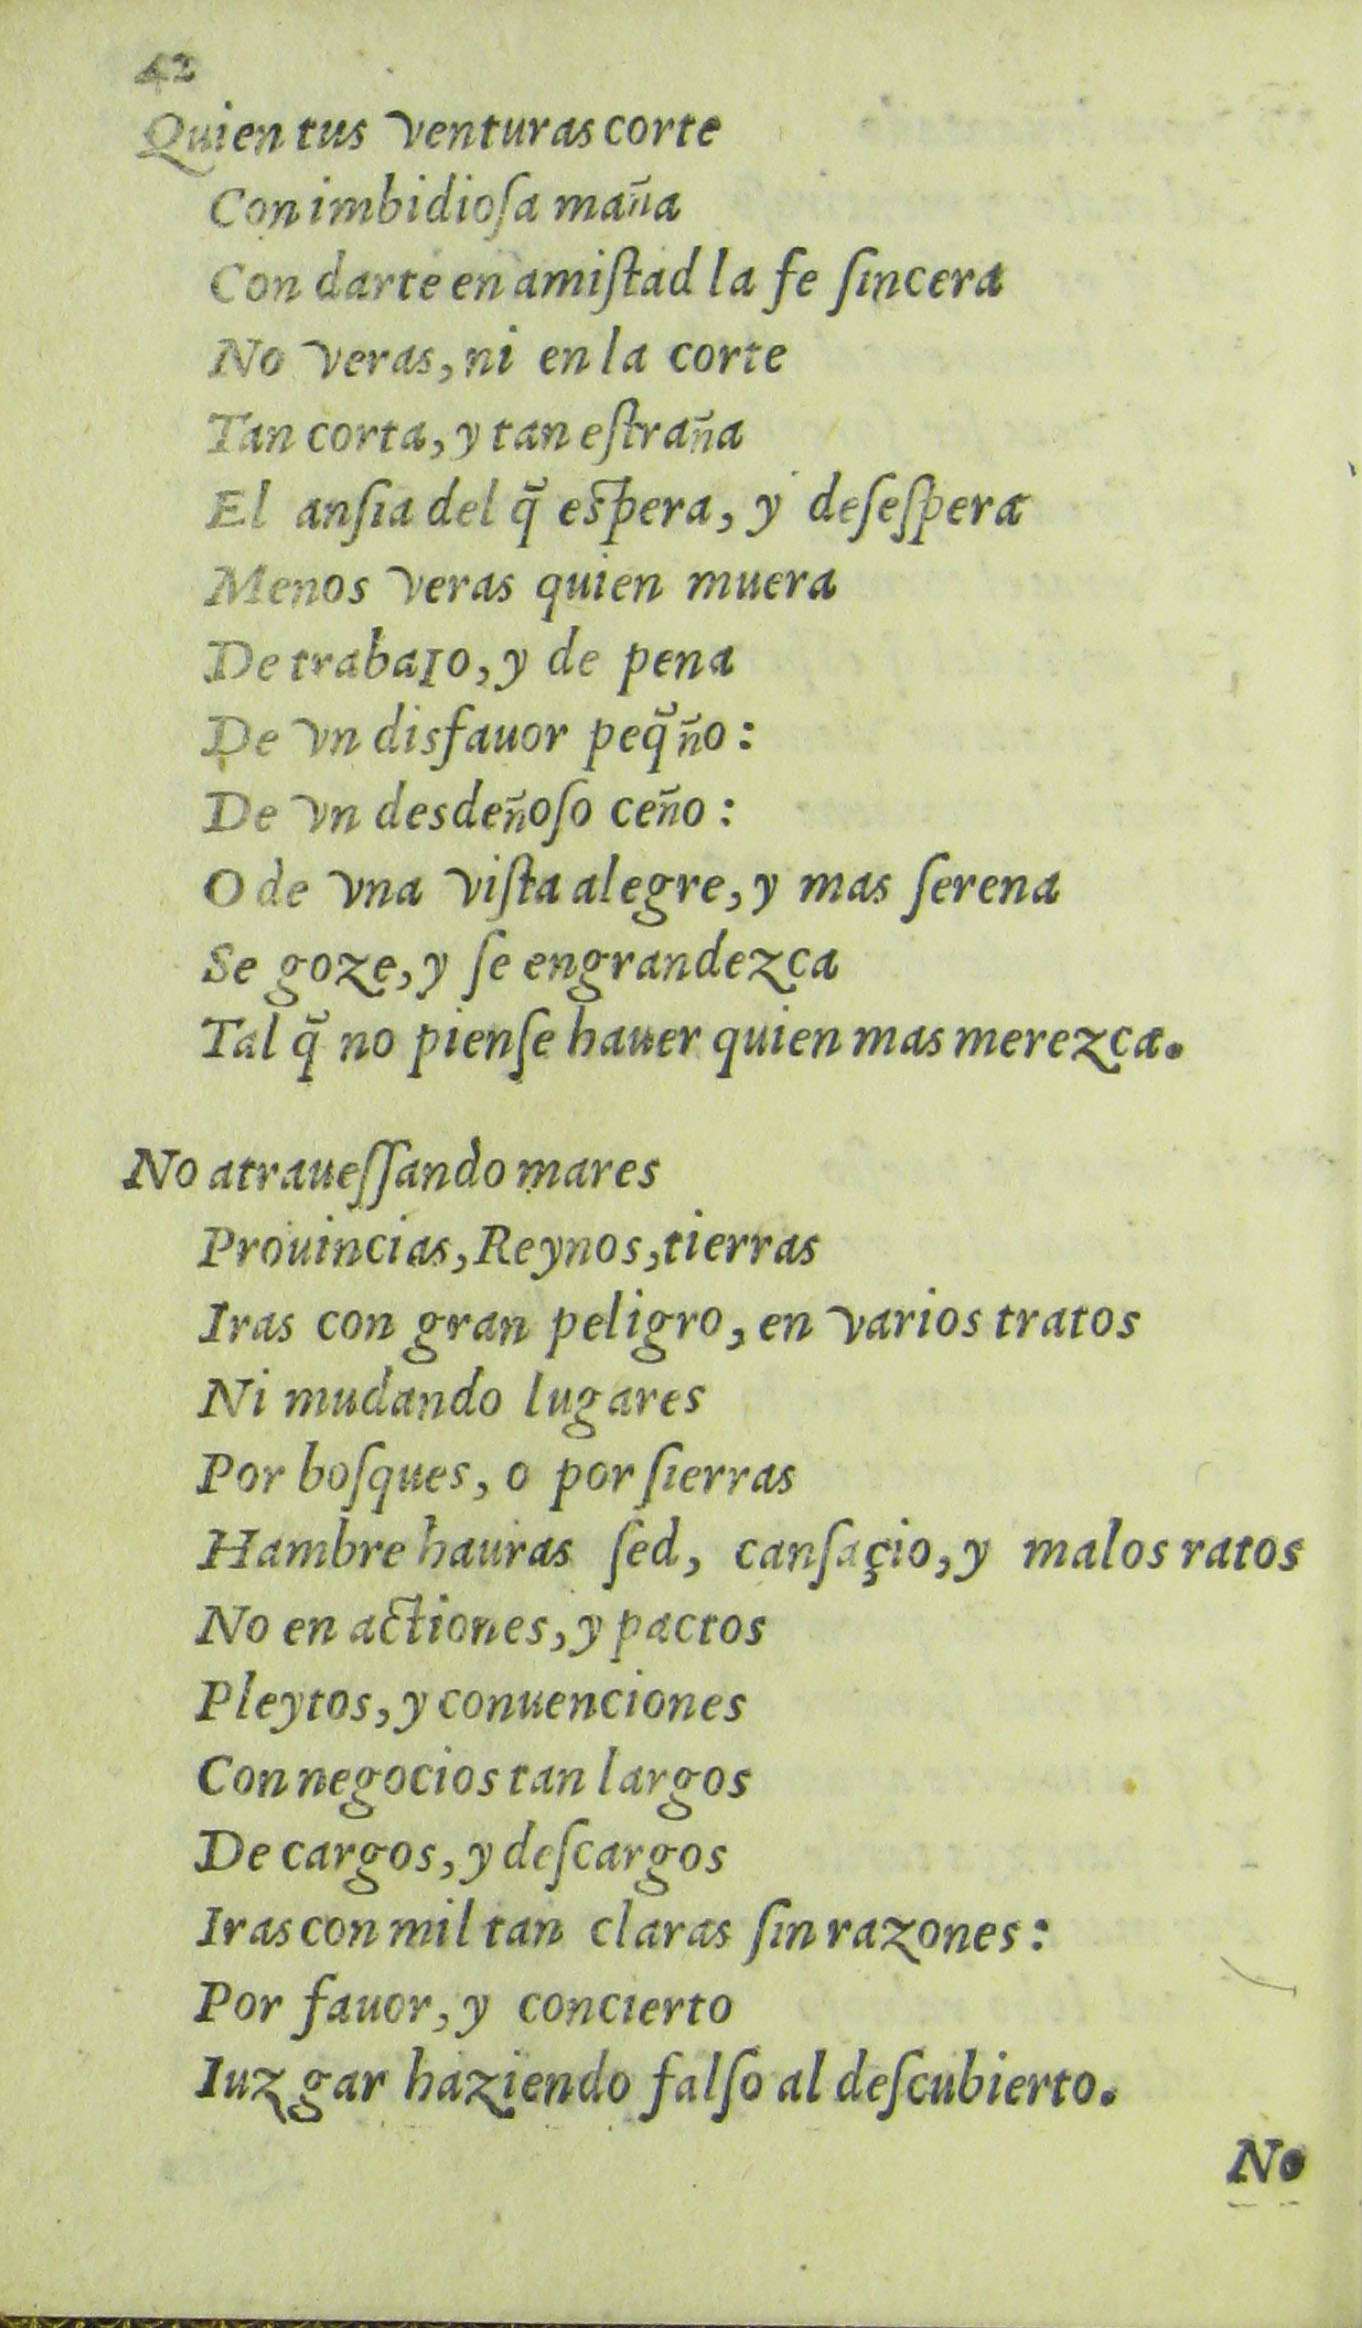 42
Quien tus venturas corte
Con imbidioſa maña
Con darte en amiſtad la fe ſincera
No veras, ni en la corte
Tan corta, y tan eſtraña
El anſia del q̃ eſpera, y deſeſpera
Menos veras quien muera
De trabaıo, y de pena
De vn disfauor peq̃ño:
De vn desdeñoſo ceño:
O de vna viſta alegre, y mas ſerena
Se goze, y ſe engrandezca
Tal q̃ no pienſe hauer quien mas merezca.
No atraueſſando mares
Prouincias, Reynos, tierras
Iras con gran peligro, en varios tratos
Ni mudando lugares
Por boſques, o por ſierras
Hambre hauras ſed, canſaçio, y malos ratos
No en actiones, y pactos
Pleytos, y conuenciones
Con negocios tan largos
De cargos, y deſcargos
Iras con mil tan claras ſin razones:
Por fauor, y concierto
Iuzgar haziendo falſo al deſcubierto.
No